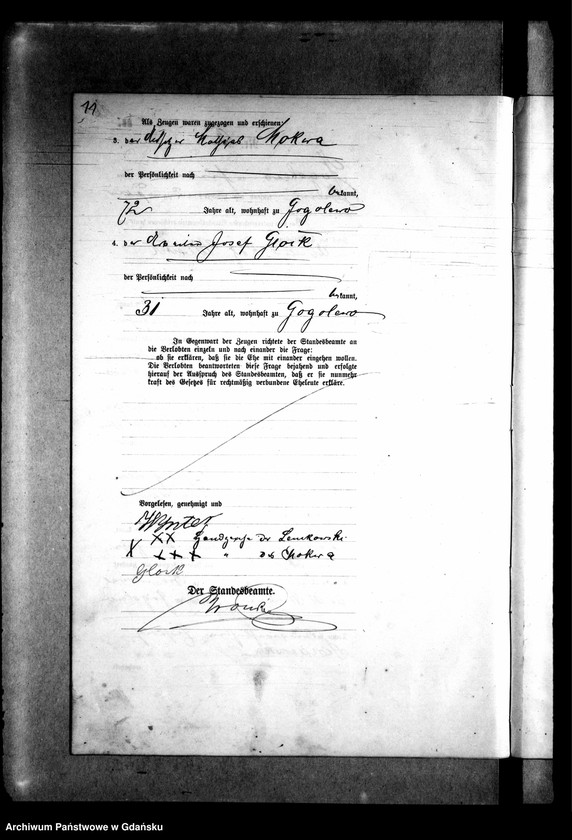 11
Als Zeugen waren zugezogen und erschienen:
3. der Mokwa
der Persönlichkeit nach
bekannt,
72 Jahre alt, wohnhaft zu Gogolewo
4. der Josef Glock
der Persönlichkeit nach
bekannt,
31 Jahre alt, wohnhaft zu Gogolewo
In Gegenwart der Zeugen richtete der Standesbeamte an
die Verlobten einzeln und nach einander die Frage:
ob sie erklären, daß sie die Ehe mit einander eingehen wollen.
Die Verlobten beantworteten diese Frage bejahend und erfolgte
hierauf der Ausspruch des Standesbeamten, daß er sie nunmehr
kraft des Gesetzes für rechtmäßig verbundene Eheleute erkläre.
Vorgelesen, genehmigt und
XX Handzeichen der Lemkowski
X XXX " des Mokwa
Glock
Der Standesbeamte.
Archiwum Państwowe w Gdańsku